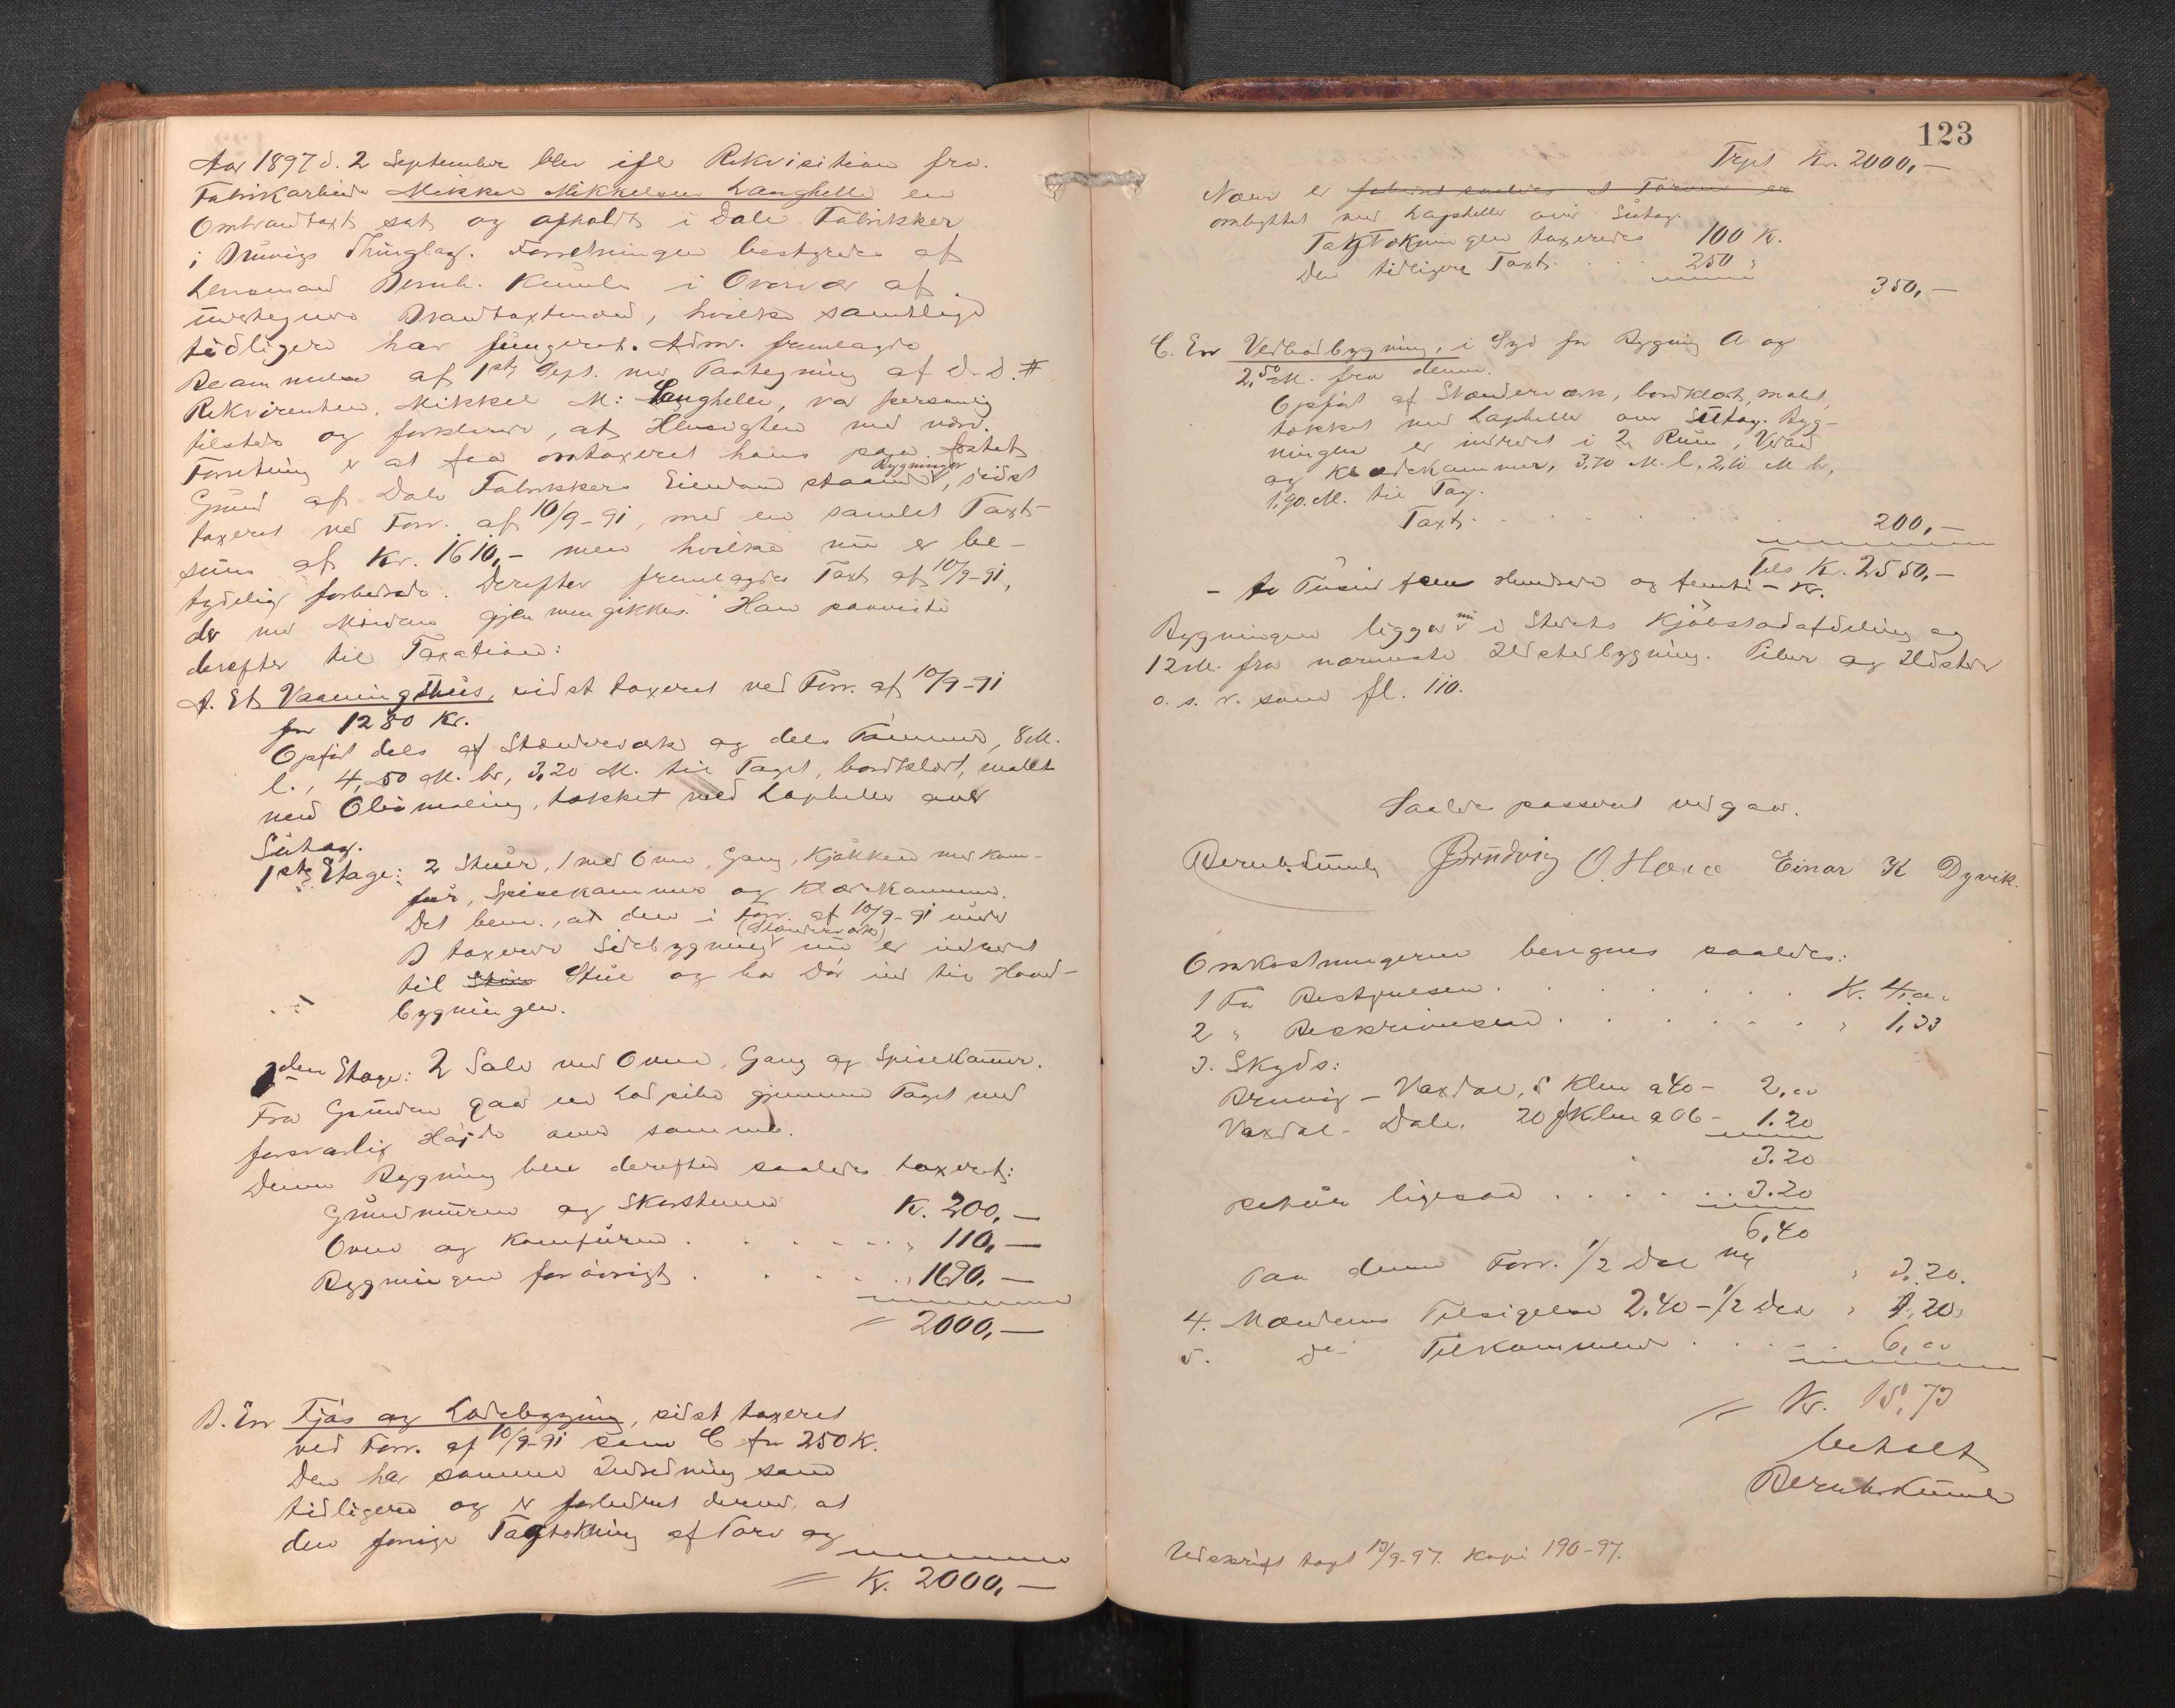 Aar 1897 d. 2 September blev ifl Rekvisition fra
Fabrikarbeider Mikkel Mikkelsen Langhelle en
Ombrandtaxt sat og afholdt i Dale Fabrikker
i Bruvigs Thinglag. Forretningen bestyredes af
Lensmand Bernh. Kunle i Overvær af
undertegnede Brandtaxtmænd, hvilke samtlige
tidligere har fungeret. Adm. fremlagde
Berammelse af 1ste Sept. med Paategning af d. D. #
Rekvirenten, Mikkel M: Langhelle, var personlig
tilstede og forklarede, at Hensigten med nærv.
Forretning er at faa omtaxeret hans paa festet
Grund af Dale Fabrikkers Eiendom staaende Bygninger, sidst
taxeret ved Forr. af 10/9-91, med en samlet Taxt-
sum af Kr. 1610,- men hvilke nu er be-
tydelig forbedrede. Derefter fremlagdes Taxt af 10/9-91,
der med Mændene gjennemgikkes. Han paaviste
derefter til Taxation:
A. Et Vaaningshus, sidst taxeret ved Forr. af 10/9-91
for 1280 Kr.
Opført dels af Stænderværk og dels Tømmer, 8 M.
l., 4,50 M. br, 3,20 M. til Taget, bordklædt, malet
med Oliemaling, tækket med Lapheller over
Sutag.
1ste Etage: 2 Stuer, 1 med Ovn, Gang, Kjøkken med Kom-
fur, Spisekammer og Klædekammer.
Det bem., at den i Forr. af 10/9-91 under
B taxerede Sidebygning (Stænderværk) nu er indredet
til Stue Stue og har Dør ind til Hoved-
bygningen.
2den Etage: 2 Sale med Ovne, Gang og Spisekammer.
Fra Grunden gaar en Lodpibe gjennem Taget med
forsvarlig Høide over samme.
Denne Bygning blev derefter saaledes taxeret:
Grundmuren og Skorstenen K. 200,—
Ovne og Komfuren . . . . . " 110,—
Bygningen forøvrigt . . . . . " 1690,—
= 2000,—
B. En Fjøs og Ladebygning, sidst taxeret
ved Forr. af 10/9-91 som C for 250 K.
Den har samme Indredning som
tidligere og er forbedret derved, at
den forrige Tagtækning af Torv og
= Kr. 2000,—
123
Trpt Kr. 2000,—
Næver er
ombyttet med Lapheller over Sutag.
Tagtækningen taxeredes 100 K.
Den tidligere Taxt . . . 250 "
350,—
C. En Vedbodbygning, i Syd for Bygning A og
2,50 M. fra denne.
Opført af Stænderværk, bordklædt, malet,
tækket med Lapheller over Sutag. Byg-
ningen er indredet i 2 Rum, Vedbod
og Klædekammer, 3,70 M. l. 2,10 M br,
1,90 M. til Tag.
Taxt . . . . . . 200,—
Tils Kr. 2550,—
- to Tusind fem Hundrede og femti - Kr.
Bygningen ligger nu i Stedets Kjøbstadafdeling og
12 M. fra nærmeste Ildstedbygning. Piber og Ildsteder
o. s. v. som fl. 110.
Saaledes passeret vedgaar.
Bernh. Kunle Brudvig O. Horve Einar K Dyvik.
Omkostningerne beregnes saaledes:
1 For Bestyrelsen . . . . . . . K. 4,00
2 " Beskrivelsen . . . . . . " 1,33
3. Skyds:
Bruvig - Vaxdal, 5 Klm a 40 - 2,00
Vaxdal - Dale. 20 Klm a 06 - 1.20
3.20
retur ligesaa . . . . . . . 3.20
6,40
Paa denne Forr. 1/2 Del " 3.20.
4. Mændenes Tilsigelse 2.40 - 1/2 Del " 1,20.
5. do Tilkommende . . . . 6,00
= Kr. 15,73
betalt
Bernh. Kunle
Udskrift tagt 13/9-97. Kopi 190-97.